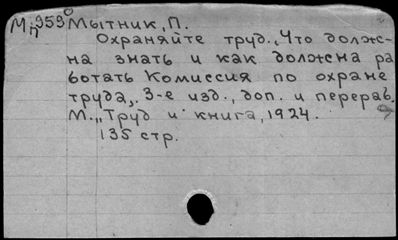 Мп 959 Мытник, П.
Охраняйте труд. „Что долж-
на знать и как должна ра
ботать Комиссия по охране
труда„. 3-е изд., доп. и перераб.
М., „Труд и книга, 1924.
135 стр.